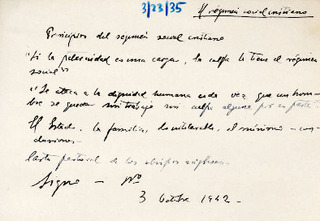 3/23/35
El régimen social cristiano
Principios del régimen social cristiano
"Si la paternidad es una carga, la culpa la tiene el régimen
social"
"Se ataca a la dignidad humana cada vez que un hom-
bre se queda sin trabajo sin culpa alguna por su parte"
El Estado, la familia, el
clusiones.
Carta pastoral de los obispos ingleses.
Signo — Nº
3 octubre 1942 -